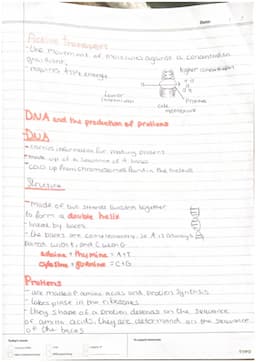 Date:
Active transport
- the movement of molecules against a concentration
gradient.
- requires ATP energy
higher concentration
lower
concentration
Protein
cell
membrane
DNA and the production of protiens
DNA
- carries information for making protiens
- made up of a sequence of 4 bases
- coils up from chromosomes found in the nucleus
Structure
- made of two strands twisted together
to form a double helix
- linked by bases
- the bases are complementary so A is always
paired with T, and C with G
adenine + thymine = A+T
cytosine + guanine = C+G
Protiens
- are made of amino acids and protien synthesis
takes place in the ribosomes
- they shape of a protien depends on the sequence
of amino acids, they are determined by the sequence
of the bases
TYPO